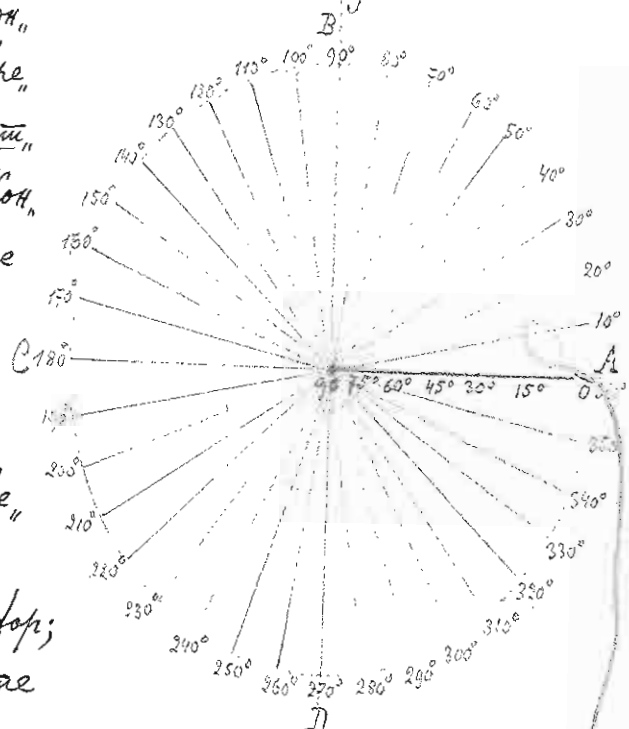 он„
ре„
он„
е
е„
тор;
ае
B
100° 90° 80° 70° 60° 50° 40° 30° 20° 10°
A
110° 120° 130° 140° 150° 160° 170°
C 180°
90 75° 60° 45° 30° 15° 0°
190° 200° 210° 220° 230° 240° 250° 260° 270° 280° 290° 300° 310° 320° 330° 340° 350°
D